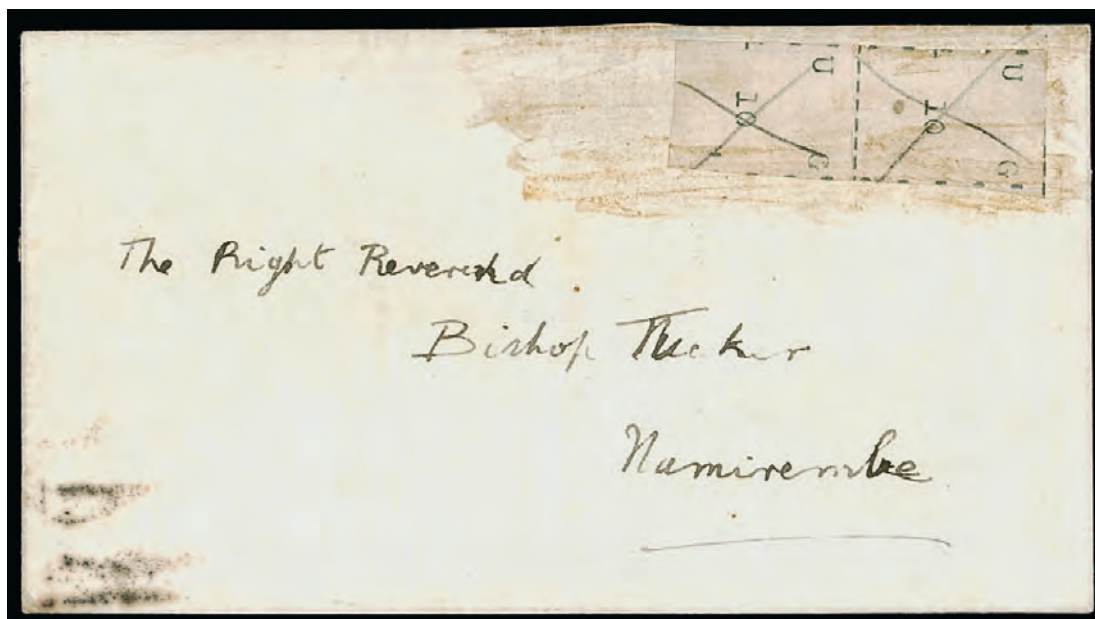 U G U G
10 10
The Right Reverend
Bishop Tucker
Namirembe